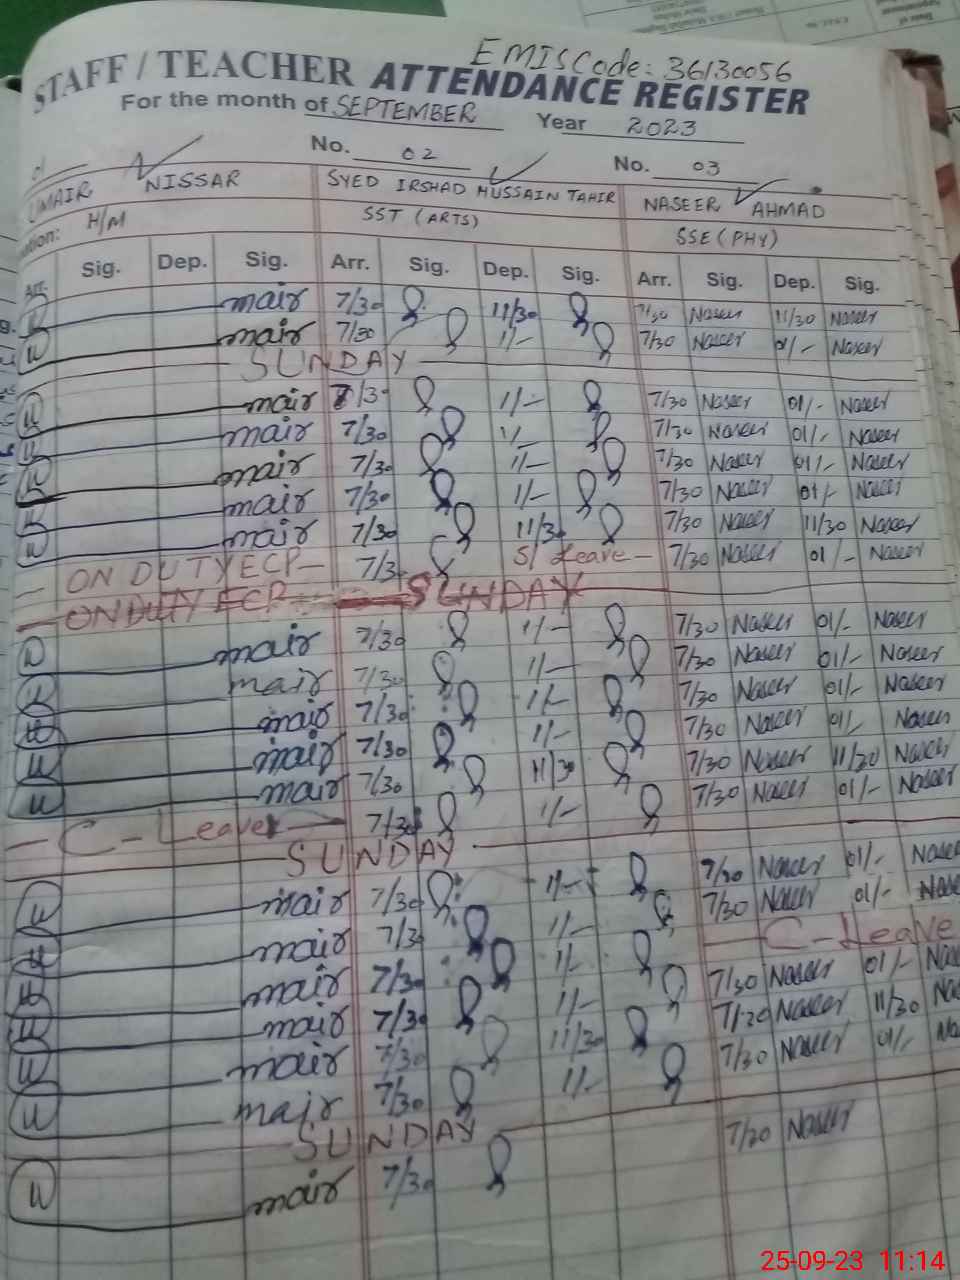 EMISCode: 36130056
STAFF / TEACHER ATTENDANCE REGISTER
For the month of SEPTEMBER Year 2023
No. 02 No. 03
UMAIR NISSAR SYED IRSHAD HUSSAIN TAHIR NASEER AHMAD
H/M SST (ARTS) SSE (PHY)
Arr. Sig. Dep. Sig. Arr. Sig. Dep. Sig. Arr. Sig. Dep. Sig.
U mair 7/30 11/30 7/30 Naseer 11/30 Naseer
U mair 7/30 1/- 7/30 Naseer 01/- Naseer
SUNDAY
U mair 7/30 1/- 7/30 Naseer 01/- Naseer
U mair 7/30 1/- 7/30 Naseer 01/- Naseer
U mair 7/30 1/- 7/30 Naseer 01/- Naseer
U mair 7/30 1/- 7/30 Naseer 01/- Naseer
U mair 7/30 11/30 7/30 Naseer 11/30 Naseer
ON DUTY ECP 7/30 S/ Leave 7/30 Naseer 01/- Naseer
ON DUTY ECP SUNDAY
U mair 7/30 1/- 7/30 Naseer 01/- Naseer
U mair 7/30 1/- 7/30 Naseer 01/- Naseer
U mair 7/30 1/- 7/30 Naseer 01/- Naseer
U mair 7/30 1/- 7/30 Naseer 01/- Naseer
U mair 7/30 11/30 7/30 Naseer 11/30 Naseer
C-Leave 7/30 1/- 7/30 Naseer 01/- Naseer
SUNDAY
U mair 7/30 1/- 7/30 Naseer 01/- Nasee
U mair 7/30 1/- 7/30 Naseer 01/- Nasee
U mair 7/30 1/- C-Leave
U mair 7/30 1/- 7/30 Naseer 01/- Nas
U mair 7/30 11/30 7/30 Naseer 11/30 Na
U mair 7/30 1/- 7/30 Naseer 01/- Na
SUNDAY
U mair 7/30 7/30 Naseer
25-09-23 11:14